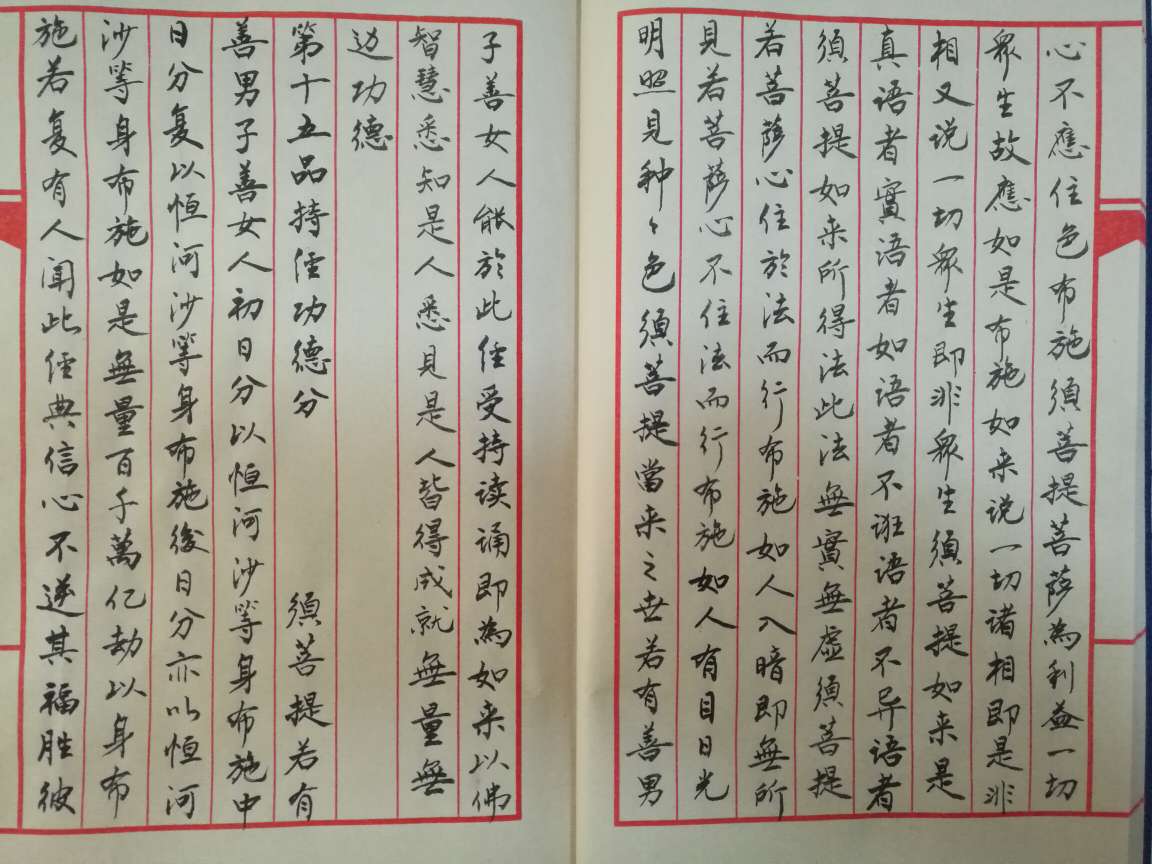 心不應住色布施須菩提菩薩為利益一切
眾生故應如是布施如来说一切诸相即是非
相又说一切眾生即非眾生須菩提如来是
真语者實语者如语者不诳语者不异语者
須菩提如来所得法此法無實無虚須菩提
若菩薩心住於法而行布施如人入暗即無所
見若菩薩心不住法而行布施如人有目日光
明照見种々色須菩提當来之世若有善男
子善女人能於此经受持读诵即為如来以佛
智慧悉知是人悉見是人皆得成就無量無
边功德
第十五品持经功德分 須菩提若有
善男子善女人初日分以恒河沙等身布施中
日分复以恒河沙等身布施後日分亦以恒河
沙等身布施如是無量百千萬亿劫以身布
施若复有人闻此经典信心不逆其福胜彼